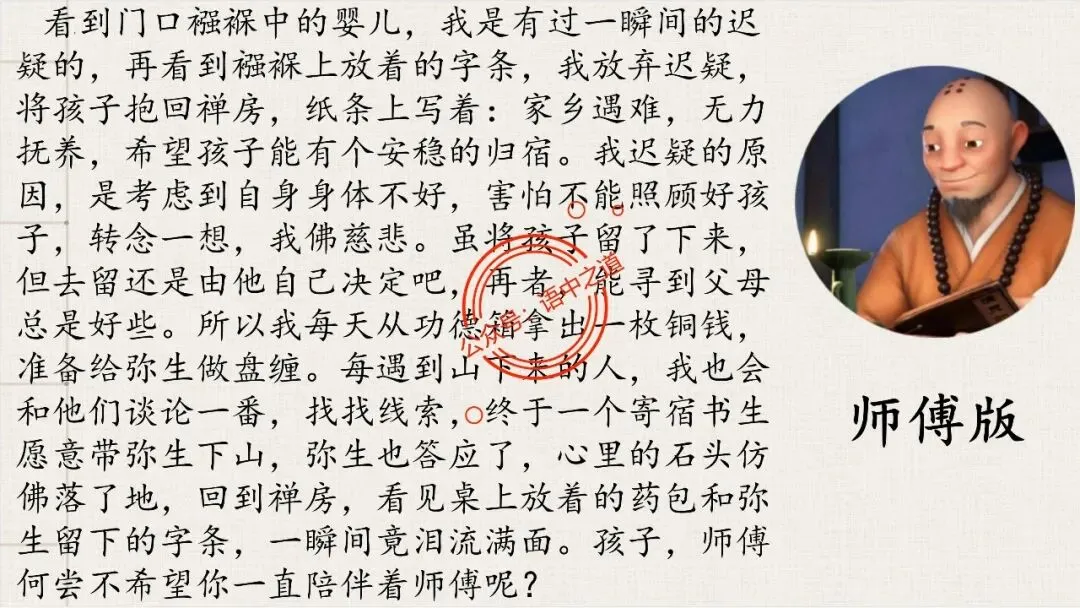 看到门口襁褓中的婴儿，我是有过一瞬间的迟
疑的，再看到襁褓上放着的字条，我放弃迟疑，
将孩子抱回禅房，纸条上写着：家乡遇难，无力
抚养，希望孩子能有个安稳的归宿。我迟疑的原
因，是考虑到自身身体不好，害怕不能照顾好孩
子，转念一想，我佛慈悲。虽将孩子留了下来，
但去留还是由他自己决定吧，再者，能寻到父母
总是好些。所以我每天从功德箱拿出一枚铜钱，
准备给弥生做盘缠。每遇到山下来的人，我也会
和他们谈论一番，找找线索，终于一个寄宿书生
愿意带弥生下山，弥生也答应了，心里的石头仿
佛落了地，回到禅房，看见桌上放着的药包和弥
生留下的字条，一瞬间竟泪流满面。孩子，师傅
何尝不希望你一直陪伴着师傅呢？
师傅版
公众号：语中之道